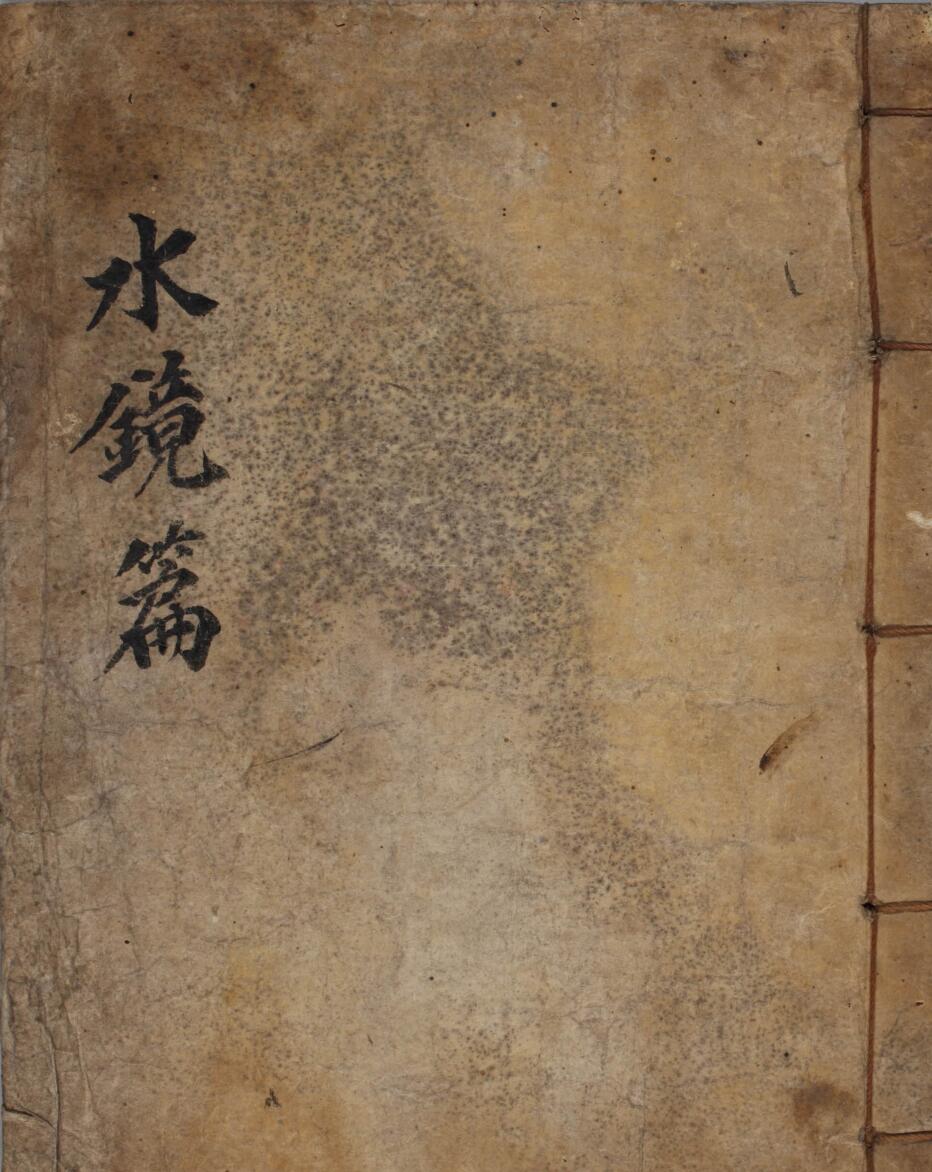 水鏡篇